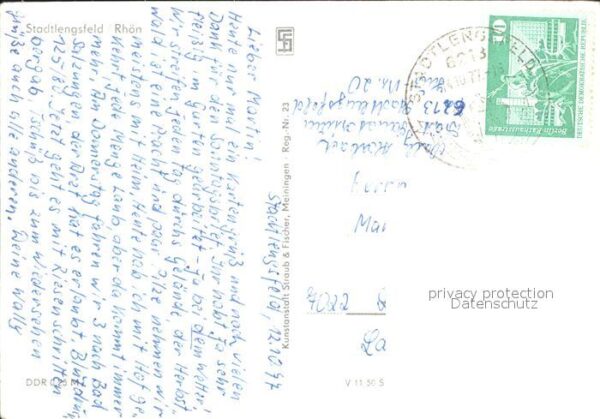 Stadtlengsfeld / Rhön
Stadtlengsfeld, 12.10.77
Liebe Martin!
Heute nun ein Kartengruß und noch vielen
Dank für den Sonntagsbrief. Ihr habt ja sehr
fleißig im Garten gearbeitet - ja bei dem Wetter!
Wir streifen jeden Tag durchs Gelände der Herbst-
wald ist eine Pracht und paar Pilze nehmen wir
meistens mit heim. Heute hab ich mit Hof ge-
kehrt jede Menge Laub, aber da kommt immer
mehr. Am Donnerstag fahren wir 3 nach Bad
Salzungen der Arzt hat es erlaubt
Jetzt geht es mit Riesenschritten
bergab. Tschüß bis zum Wiedersehen
Grüß auch alle anderen.
Deine Wally
DDR 0,25 M
Kunstanstalt Straub & Fischer, Meiningen · Reg.-Nr. 23
V 11 50 S
6213 Stadtlengsfeld
Nr. 20
Mar
7022
STADTLENGSFELD
6213
10
Berlin Rathausstraße
DEUTSCHE DEMOKRATISCHE REPUBLIK
privacy protection
Datenschutz